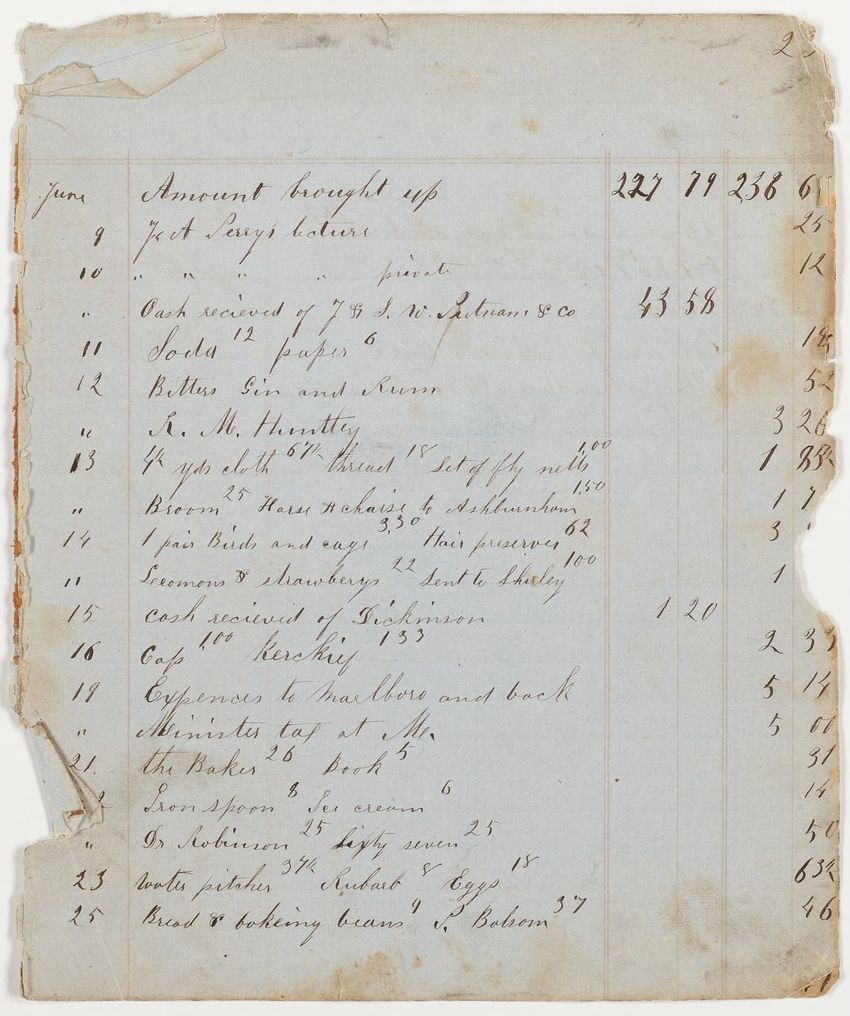 2
June Amount brought up 227 79 238 6
9 J. A Perry's lecture 25
10 " " " " private 12
" Cash recieved of J & S. W. Putnam & Co 43 58
11 Soda 12 paper 6 18
12 Bitters Gin and Rum 52
" R. M. Huntley 3 26
13 4½ yds cloth 67½ thread 18 Set of fly netts 1,00 1 85½
" Broom 25 Horse & chaise to Ashburnham 1,50 1 7
14 1 pair Birds and cage 3.30 Hair preserver 62 3
" Leeomons & strawberys 22 Sent to Shirley 100 1
15 cash recieved of Dickinson 1 20
16 Cap 1.00 Kerckief 133 2 33
19 Expences to Marlboro and back 5 14
" Minister tax at M. 5 00
21. the Baker 26 Book 5 31
2 Iron spoon 8 Ice cream 6 14
" Dr Robinson 25 Sixty seven 25 50
23 water pitcher 37½ Rubarb 8 Eggs 18 63½
25 Bread & bakeing beans 9 P. Balsom 37 46